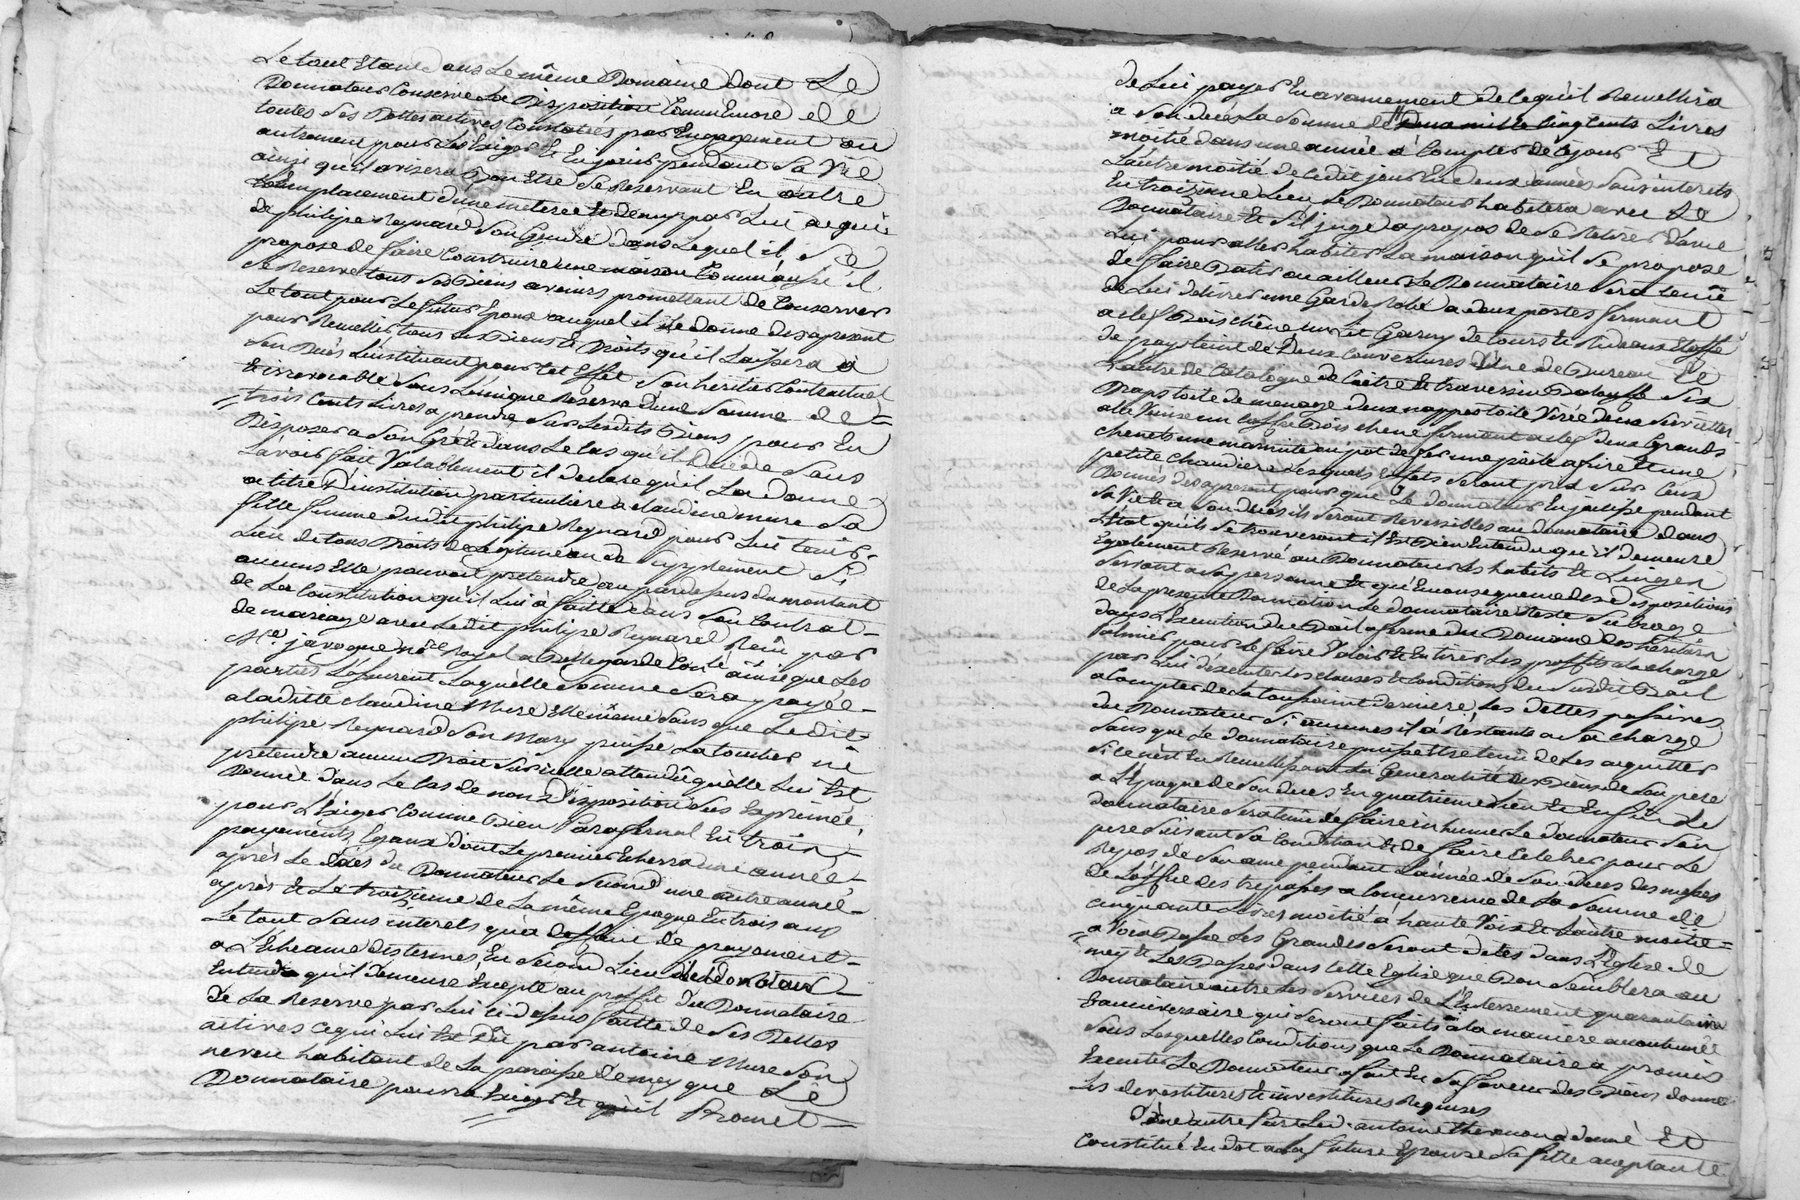 Le tout Etant dans Le même Domaine Dont Le
Donnateur Conserve La Disposition Comm'Encore de
toutes ses Dettes actives Constatés par Engagement ou
autrement pour Les Exiger Et En jouir pendant Sa Vie
ainsi qu'il avisera Bon Etre Se Reservant En outre
L'emplacement d'une meteree Et demy par Lui acquis
de philipe Reynard Son Gendre dans Lequel il Se
propose de faire Construire une maison Comm'aussi il
Se Reserve tous Ses Biens avenirs promettant de Conserver
Le tout pour Le futur Epoux auquel il Le donne des apresent
pour Recueillir tous Les Biens Et Droits qu'il Laissera a
Son Decès L'instituant pour Cet Effet Son heritier Contractuel
Et irrevocable Sous L'unique Reserve d'une Somme de
trois Cents Livres a prendre Sur Lesdits Biens pour En
Disposer a Son Gré Et dans Le Cas qu'il Decede Sans
L'avoir fait Valablement il declare qu'il La donne
a titre D'institution particuliere a claudine mure Sa
fille femme dudit philipe Reynard pour Lui tenir
Lieu de tous Droits de Legitime ou de Supplement Si
aucuns Elle pouvoit pretendre au pardessus du montant
de La Constitution qu'il Lui à faitte dans Son Contrat
de mariage avec Ledit philipe Reynard Reçu par
Me. javogue nore Royal a Bellegarde ainsi que Les
parties L'assurent Laquelle Somme Sera payée
a laditte claudine Mure Elle même Sans que Ledit
philipe Reynard Son Mary puisse La toucher ni
pretendre aucun Droit Sur icelle attendu qu'elle Lui Est
Donnée dans Le Cas de non Disposition Sus Exprimée
pour L'Exiger Comme Bien Parafernal En trois
payements Egaux dont Le premier Echerra une année
après Le Décès du Donnateur Le Second une autre année
après Et Le troizieme de La même Epoque En trois ans
Le tout Sans interets qu'à deffaut de payement
a L'Echeance des termes En Second Lieu
Entendu qu'il demeure Excepté au proffit du Donnataire
de La Reserve par Lui ci dessus faitte de Ses Dettes
actives Ce qui Lui Est Dû par antoine Mure Son
neveu habitant de La paroisse de mey que Le
Donnataire pourra Exiger Et qu'il Promet
de Lui payer En avancement de Ce qu'il Recuillira
a Son Decès La Somme de Deux mille Cinq Cents Livres
moitié dans une année a Compter de Ce jour Et
L'autre moitié de Cedit jour En deux années Sans interets
En troizieme Lieu Le Donnateur habitera avec Le
Donnataire Et S'il juge apropos de Se Retirer d'avec
Lui pour aller habiter La maison qu'il Se propose
de faire Batir ou ailleurs Le Donnataire Sera tenu
de Lui delivrer une Garde Robe a deux portes fermant
a clef Bois chêne un Lit Garny de tours Et Rideaux Etoffe
de pays teint de Deux Couvertures L'une de Bureau Et
L'autre de Catalogne de Coitre Et traversin Six
Draps toile de menage deux nappes toile deux Serviettes
un Coffre Bois chene fermant a clef deux Grands
chenets une marmitte ou pot de fer une poële a frire Et une
petite chaudiere Lesquels Effets Seront pris Sur Ceux
Donnés des apresent pour que Le donnateur En jouisse pendant
Sa Vie Et a Son deces ils Seront Reversibles au Donnataire dans
L'état qu'ils Se trouveront il Est Bien Entendu qu'il demeure
Egalement Reservé au Donnateur Les habits Et Linges
Servant a Sa personne Et qu'En Consequence des dispositions
de La presente Donnation Le donnataire Reste Subrogé
dans L'Execution du Bail a ferme du Domaine des heritiers
Palmier pour Le faire Valoir Et En tirer Les proffits a la charge
par Lui d'executer Les clauses Et Conditions du Susdit Bail
a Compter de La toussaint derniere Les dettes passives
du Donnateur Si aucunes il à Restants a Sa charge
Sans que Le Donnataire puisse Etre tenu de Les acquitter
Si Ce n'est En Recueillant La Generalité des Biens de Son pere
a L'Epoque de Son deces En quatrieme Lieu Et Enfin Le
Donnataire Sera tenu de faire inhumer Le Donnateur Son
pere Suivant Sa Condition Et de faire Celebrer pour Le
Repos de Son ame pendant L'année de Son deces des messes
de L'office des trepassés a Concurrence de La Somme de
Cinquante Livres moitié a haute Voix Et L'autre moitié
a Voix Basse Les Grandes Seront dites dans L'Eglise de
mey Et Les Basses dans telle Eglise que Bon Semblera au
Donnataire outre Les Services de L'Enterrement quarantaine
Et anniversaire qui Seront faits à la maniere accoutumée
Sous Lesquelles Conditions que Le Donnataire a promis
Executer Le Donnateur a fait En Sa faveur des Biens donnés
Les devestitures Et investitures Requises
D'une autre Part Led. antoine a donné Et
Constitué En dot a la future Epouse Sa fille acceptante